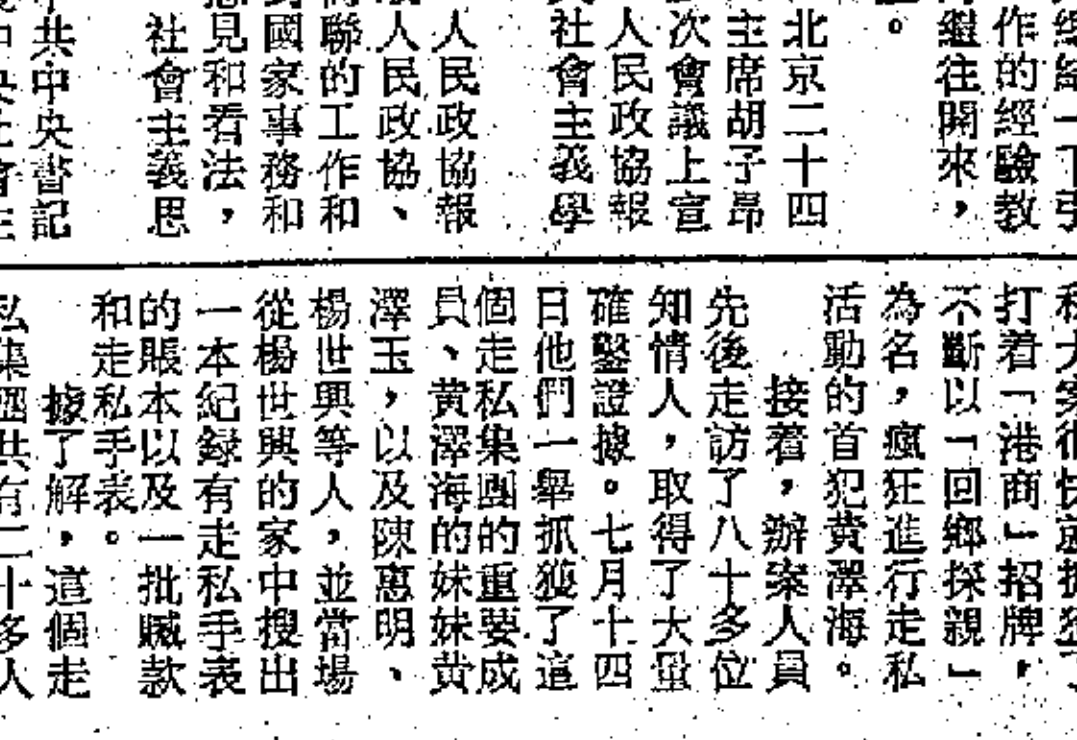 下引
作的經驗教
繼往開來，
。
北京二十四
主席胡子昂
次會議上宣
人民政協報
社會主義學
人民政協報
人民政協、
聯的工作和
國家事務和
見和看法，
社會主義思
中共中央書記
打着「港商」招牌，
不斷以「回鄉探親」
為名，瘋狂進行走私
活動的首犯黄澤海。
接着，辦案人員
先後走訪了八十多位
知情人，取得了大量
確鑿證據。七月十四
日他們一舉抓獲了這
個走私集團的重要成
員、黄澤海的妹妹黄
澤玉，以及陳惠明、
楊世興等人，並當場
從楊世興的家中搜出
一本紀録有走私手表
的賬本以及一批贓款
和走私手表。
據了解，這個走
私集團共有二十多人